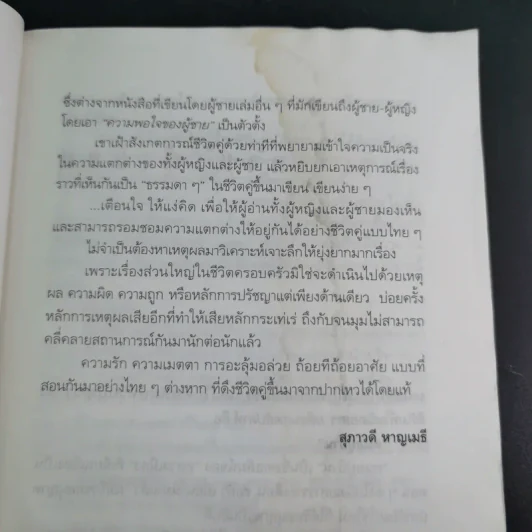 ซึ่งต่างจากหนังสือที่เขียนโดยผู้ชายเล่มอื่น ๆ ที่มักเขียนถึงผู้ชาย-ผู้หญิง
โดยเอา "ความพอใจของผู้ชาย" เป็นตัวตั้ง
เขาเฝ้าสังเกตการณ์ชีวิตคู่ด้วยท่าทีที่พยายามเข้าใจความเป็นจริง
ในความแตกต่างของทั้งผู้หญิงและผู้ชาย แล้วหยิบยกเอาเหตุการณ์เรื่อง
ราวที่เห็นกันเป็น "ธรรมดา ๆ" ในชีวิตคู่ขึ้นมาเขียน เขียนง่าย ๆ
...เตือนใจ ให้แง่คิด เพื่อให้ผู้อ่านทั้งผู้หญิงและผู้ชายมองเห็น
และสามารถรอมชอมความแตกต่างให้อยู่กันได้อย่างชีวิตคู่แบบไทย ๆ
ไม่จำเป็นต้องหาเหตุผลมาวิเคราะห์เจาะลึกให้ยุ่งยากมากเรื่อง
เพราะเรื่องส่วนใหญ่ในชีวิตครอบครัวมิใช่จะดำเนินไปด้วยเหตุ
ผล ความผิด ความถูก หรือหลักการปรัชญาแต่เพียงด้านเดียว บ่อยครั้ง
หลักการเหตุผลเสียอีกที่ทำให้เสียหลักกระเท่เร่ ถึงกับจนมุมไม่สามารถ
คลี่คลายสถานการณ์กันมานักต่อนักแล้ว
ความรัก ความเมตตา การอะลุ้มอล่วย ถ้อยทีถ้อยอาศัย แบบที่
สอนกันมาอย่างไทย ๆ ต่างหาก ที่ดึงชีวิตคู่ขึ้นมาจากปากเหวได้โดยแท้
สุภาวดี หาญเมธี